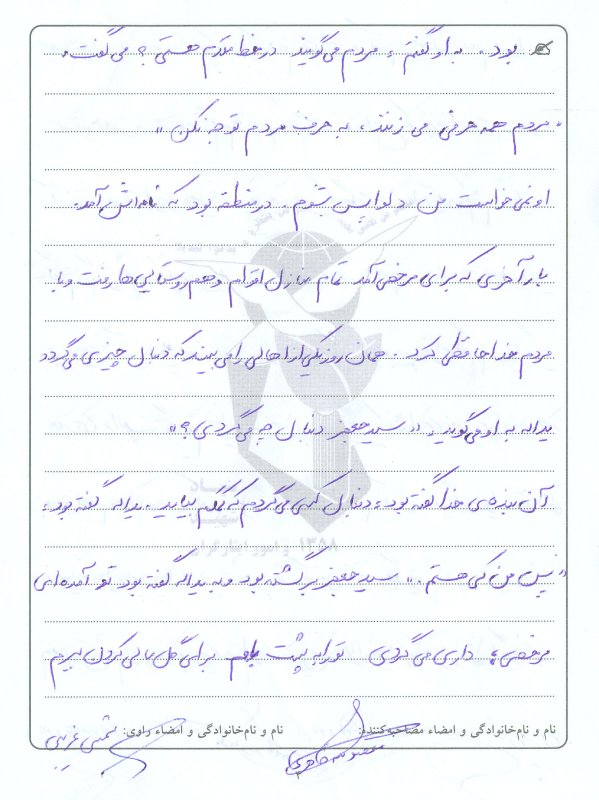 بود. به او گفتم، مردم می‌گویند در خط مقدم هستی؟ می‌گفت،
"مردم همه حرفی می زنند، به حرف مردم توجه نکن"
او نمی خواست من دلواپس بشوم. در منطقه بود که نامه‌اش آمد.
بار آخری که برای مرخصی آمد تمام منازل اقوام و هم روستایی‌ها رفت و با
مردم خداحافظی کرد. همان روز یکی از اهالی را می‌بیند که دنبال چیزی می‌گردد
یداله به او می‌گوید، "سید جعفر دنبال چه می‌گردی؟"
آن بنده‌ی خدا گفته بود، دنبال کسی می‌گردم که کمکم بیاید. یداله گفته بود،
"پس من کی هستم." سید جعفر برگشته بود و به یداله گفته بود تو آمده‌ای
مرخصی، داری می‌گردی تو را به پشت بام برای گل مالی کردن ببرم
نام و نام‌خانوادگی و امضاء مصاحبه‌کننده: نام و نام‌خانوادگی و امضاء راوی:
۱۳۵۸